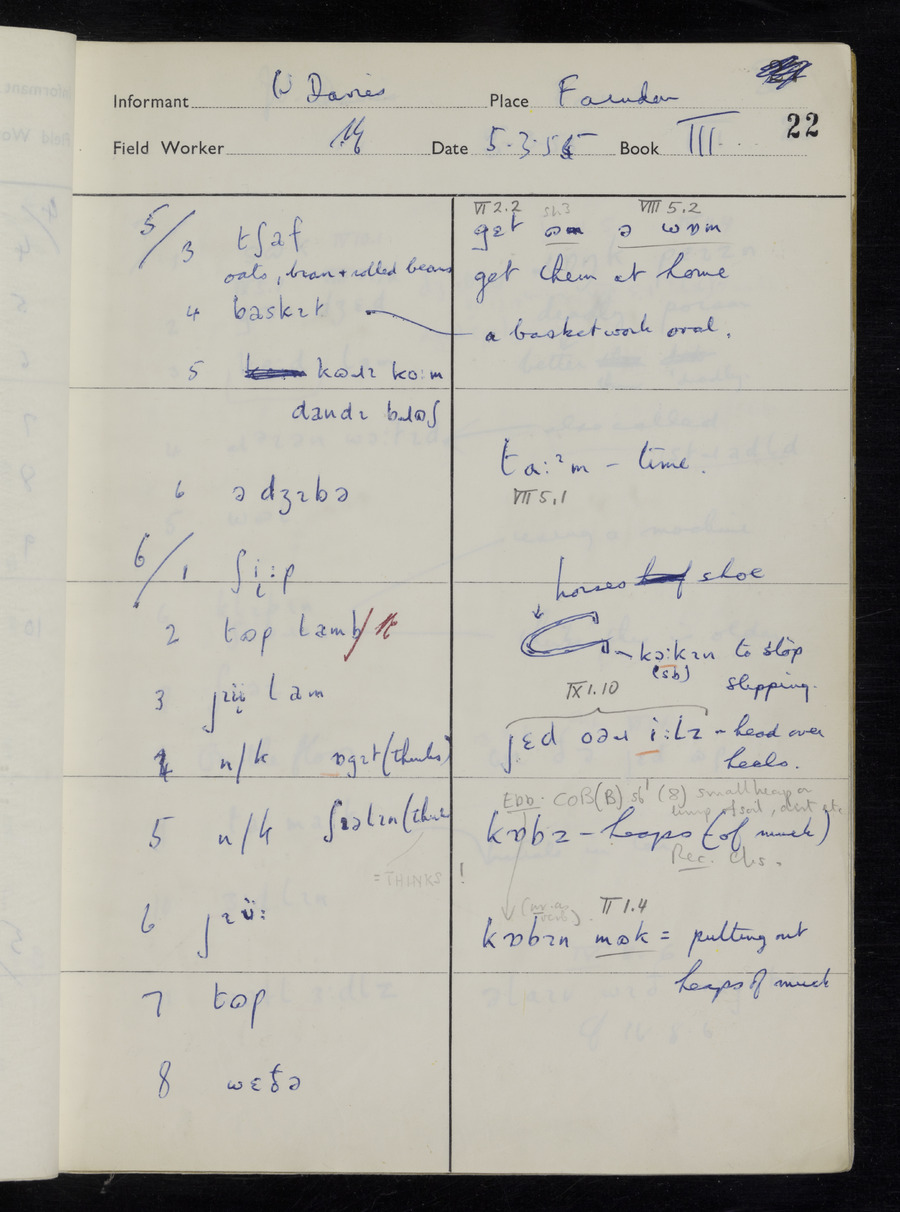 Informant W Davies Place Farndon
22
Field Worker Date 5.3.55 Book III
5/3 tʃaf
oats, bran + rolled beans
4 baskɪt
5 kɷɹɪ ko:m
dandɪ bɹɷʃ
6 ə dʒɪbə
6/1 ʃi̞:p
2 tɷp lamb
3 jɪü lam
4 n/k ɒgɪt (thinks)
5 n/k ʃɪəlɪn (thinks
= THINKS !
6 jɪü:
7 tɷp
8 ɷɛðə
VI 2.2 VIII 5.2
gɛt ə ɷɒm
get them at home
a basketwork oral.
ta:ɪm - time.
VII 5.1
horses shoe
kɔ:kɪn to stop
(sb) slipping.
IX 1.10
jɛd ɔəɹ i:lz - head over
heels.
EDD. COB(B) sb¹ (8) small heap or
lump of soil, dirt etc
kɒbz - heaps (of muck)
Rec. Chs.
II 1.4
kɒbɪn mɷk = putting out
heaps of muck